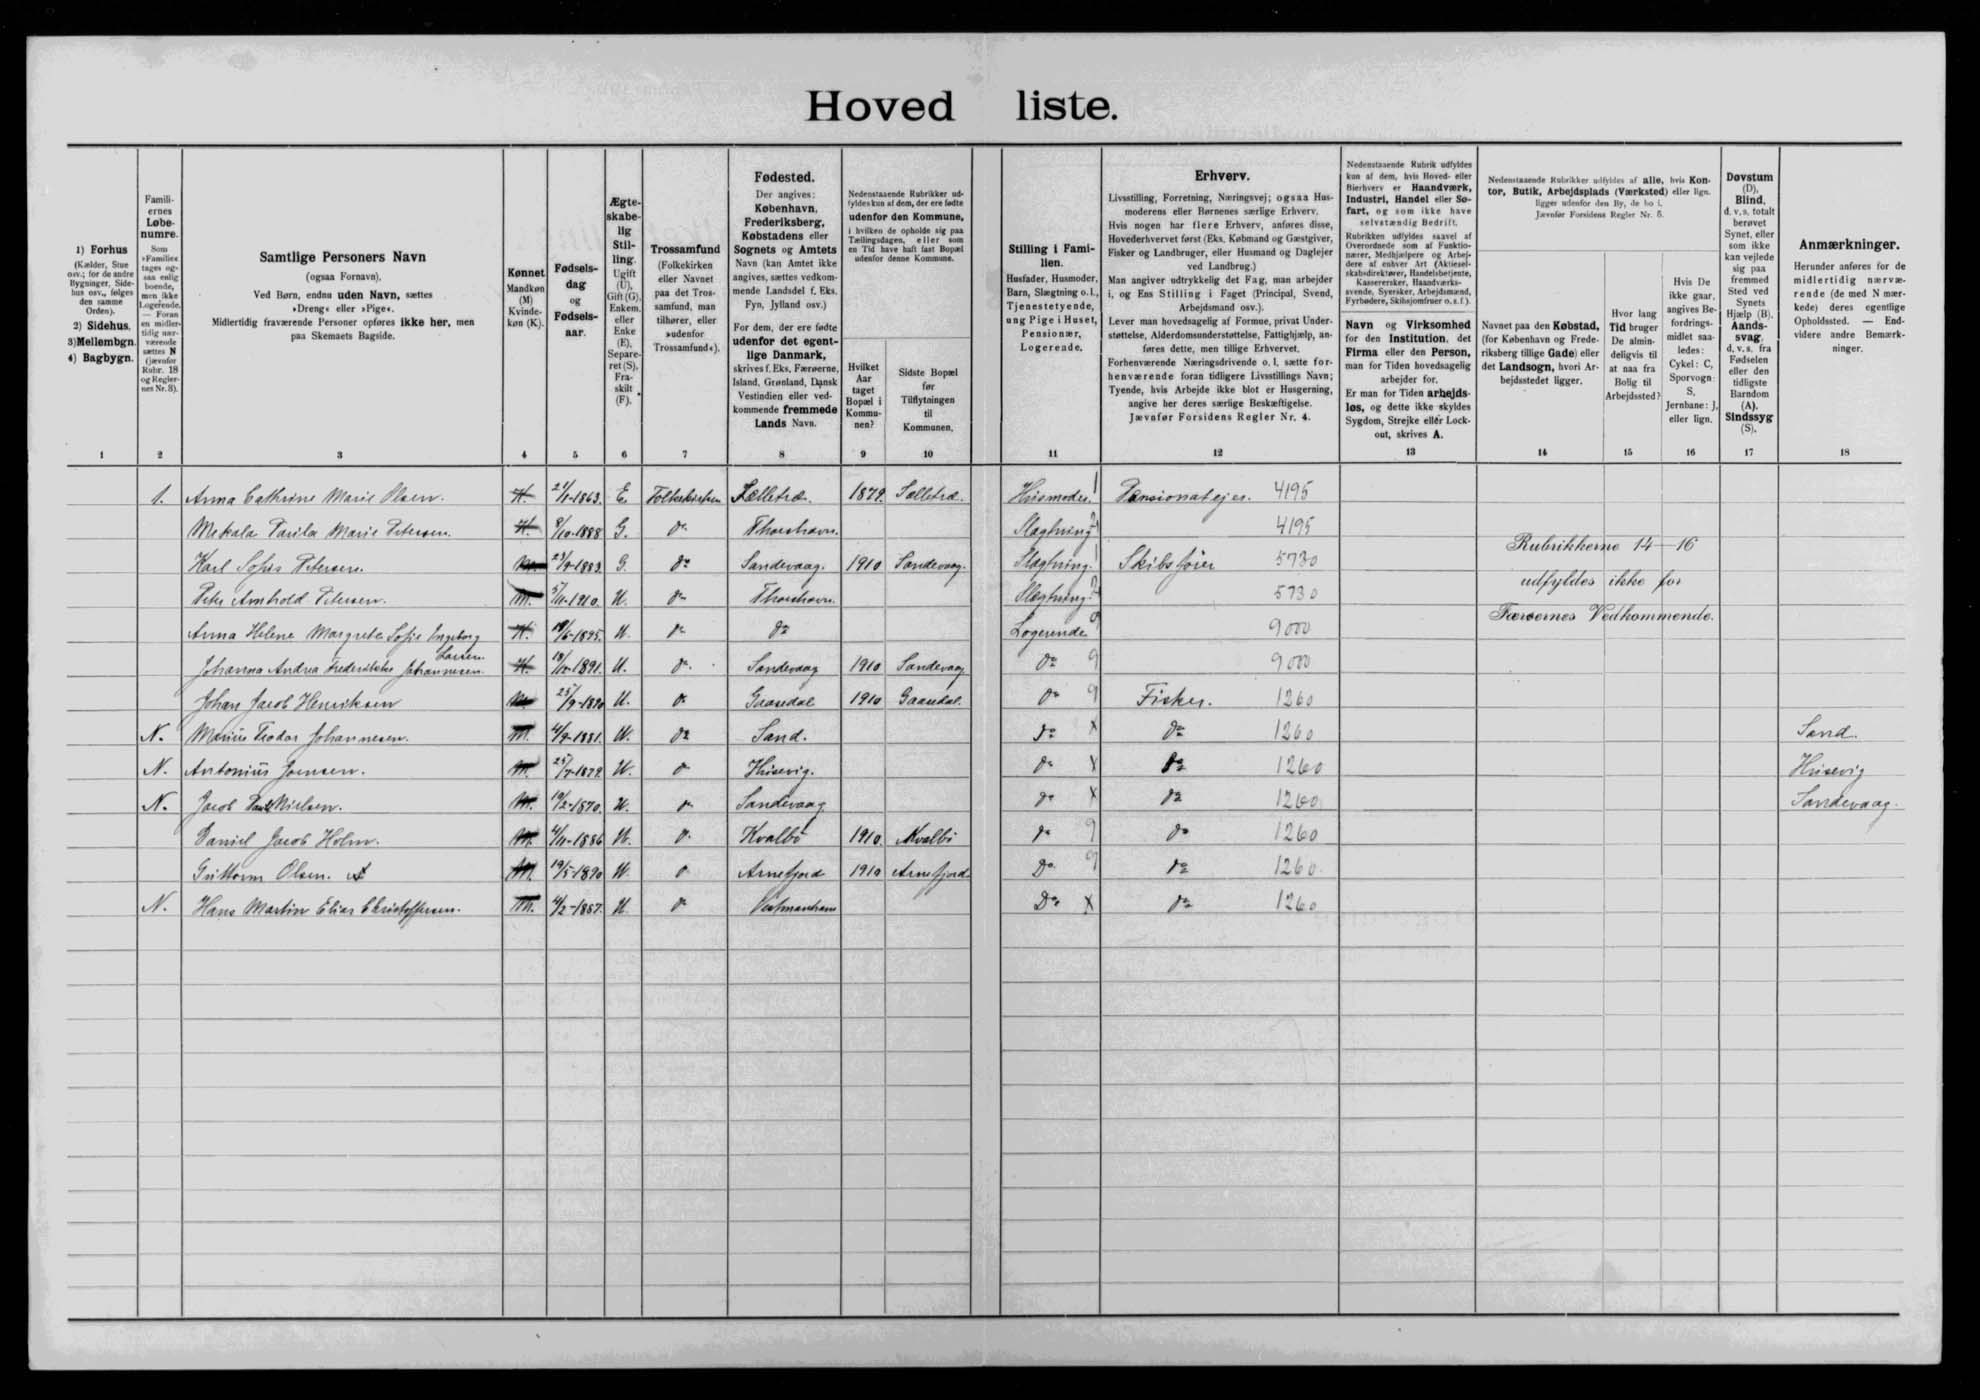 Hoved liste.
1) Forhus
(Kælder, Stue
osv.; for de andre
Bygninger, Side-
hus osv., følges
den samme
Orden).
2) Sidehus.
3) Mellembgn.
4) Bagbygn.
Famili-
ernes
Løbe-
numre.
Som
»Familie«
tages og-
saa enlig
boende,
men ikke
Logerende.
— Foran
en midler-
tidig nær-
værende
sættes N
(jævnfør
Rubr. 18
og Regler-
nes Nr. 3).
Samtlige Personers Navn
(ogsaa Fornavn).
Ved Børn, endnu uden Navn, sættes
»Dreng« eller »Pige«.
Midlertidig fraværende Personer opføres ikke her, men
paa Skemaets Bagside.
Kønnet
Mandkøn
(M)
Kvinde-
køn (K).
Fødsels-
dag
og
Fødsels-
aar.
Ægte-
skabe-
lig
Stil-
ling.
Ugift
(U),
Gift (G),
Enkem.
eller
Enke
(E),
Separe-
ret (S),
Fra-
skilt
(F).
Trossamfund
(Folkekirken
eller Navnet
paa det Tros-
samfund, man
tilhører, eller
»udenfor
Trossamfund«).
Fødested.
Der angives:
København,
Frederiksberg,
Købstadens eller
Sognets og Amtets
Navn (kan Amtet ikke
angives, sættes vedkom-
mende Landsdel f. Eks.
Fyn, Jylland osv.)
For dem, der ere fødte
udenfor det egent-
lige Danmark,
skrives f. Eks. Færøerne,
Island, Grønland, Dansk
Vestindien eller ved-
kommende fremmede
Lands Navn.
Nedenstaaende Rubrikker ud-
fyldes kun af dem, der ere fødte
udenfor den Kommune,
i hvilken de opholde sig paa
Tællingsdagen, eller som
en Tid have haft fast Bopæl
udenfor denne Kommune.
Hvilket
Aar
taget
Bopæl i
Kommu-
nen?
Sidste Bopæl
før
Tilflytningen
til
Kommunen.
Stilling i Fami-
lien.
Husfader, Husmoder,
Barn, Slægtning o. l.,
Tjenestetyende,
ung Pige i Huset,
Pensionær,
Logerende.
Erhverv.
Livsstilling, Forretning, Næringsvej; ogsaa Hus-
moderens eller Børnenes særlige Erhverv.
Hvis nogen har flere Erhverv, anføres disse,
Hovederhvervet først (Eks. Købmand og Gæstgiver,
Fisker og Landbruger, eller Husmand og Daglejer
ved Landbrug.)
Man angiver udtrykkelig det Fag, man arbejder
i, og Ens Stilling i Faget (Principal, Svend,
Arbejdsmand osv.).
Lever man hovedsagelig af Formue, privat Under-
støttelse, Alderdomsunderstøttelse, Fattighjælp, an-
føres dette, men tillige Erhvervet.
Forhenværende Næringsdrivende o. l. sætte for-
henværende foran tidligere Livsstillings Navn;
Tyende, hvis Arbejde ikke blot er Husgerning,
angive her deres særlige Beskæftigelse.
Jævnfør Forsidens Regler Nr. 4.
Nedenstaaende Rubrik udfyldes
kun af dem, hvis Hoved- eller
Bierhverv er Haandværk,
Industri, Handel eller Sø-
fart, og som ikke have
selvstændig Bedrift.
Rubrikken udfyldes saavel af
Overordnede som af Funktio-
nærer, Medhjælpere og Arbej-
dere af enhver Art (Aktiesel-
skabsdirektører, Handelsbetjente,
Kasserersker, Haandværks-
svende, Syersker, Arbejdsmænd,
Fyrbødere, Skibsjomfruer o. s. f.).
Navn og Virksomhed
for den Institution, det
Firma eller den Person,
man for Tiden hovedsagelig
arbejder for.
Er man for Tiden arbejds-
løs, og dette ikke skyldes
Sygdom, Strejke eller Lock-
out, skrives A.
Nedenstaaende Rubrikker udfyldes af alle, hvis Kon-
tor, Butik, Arbejdsplads (Værksted) eller lign.
ligger udenfor den By, de bo i.
Jævnfør Forsidens Regler Nr. 5.
Navnet paa den Købstad,
(for København og Frede-
riksberg tillige Gade) eller
det Landsogn, hvori Ar-
bejdsstedet ligger.
Hvor lang
Tid bruger
De almin-
deligvis til
at naa fra
Bolig til
Arbejdssted?
Hvis De
ikke gaar,
angives Be-
fordrings-
midlet saa-
ledes:
Cykel: C,
Sporvogn:
S,
Jernbane: J,
eller lign.
Døvstum
(D),
Blind,
d. v. s. totalt
berøvet
Synet, eller
som ikke
kan vejlede
sig paa
fremmed
Sted ved
Synets
Hjælp (B).
Aands-
svag,
d. v. s. fra
Fødselen
eller den
tidligste
Barndom
(A).
Sindssyg
(S).
Anmærkninger.
Herunder anføres for de
midlertidig nærvæ-
rende (de med N mær-
kede) deres egentlige
Opholdssted. — End-
videre andre Bemærk-
ninger.
1 2 3 4 5 6 7 8 9 10 11 12 13 14 15 16 17 18
1. Anna Cathrine Marie Olsen. K. -1863. E. Folkekirken 1879. Husmoder. 1 Pensionatejer. 4195
Marie Petersen. K. 8/10-1888 G. do Thorshavn. Slægtning 2 4195
Karl Petersen. M. -1883. G. do Sandevaag. 1910 Sandevaag. Slægtning. 1 Skibsfører 5730
Peter Arnhold Petersen. M. 5/11-1910. U. do Thorshavn. Slægtning 2 5730
Rubrikkerne 14—16
udfyldes ikke for
Færøernes Vedkommende.
Anna Helene Margrete Sofie Ingeborg K. -1895. U. do do Logerende 9 9000
Larsen.
Johanna Andrea Frederikke Johannesen. K. -1891. U. do Sandevaag 1910 Sandevaag do 9 9000
Johan Jacob Henriksen M. 25/9-1890 U. do Gaasedal 1910 Gaasedal. do 9 Fisker. 1260
N. Marius Teodor Johannesen. M. 4/9-1881. U. do Sand. do X do 1260 Sand.
N. Antonius Joensen. M. 25/7-1879. U. do Husevig. do X do 1260 Husevig
N. Jacob Nielsen. M. 19/2-1870. U. do Sandevaag do X do 1260 Sandevaag.
Daniel Jacob Holm. M. 4/11-1886 U. do Kvalbø 1910. Kvalbø do 9 do 1260
Guttorm Olsen. M. 19/5-1890 U. do Arnefjord 1910 Arnefjord Do 9 do 1260.
N. Hans Martin Elias Christoffersen. M. 4/2-1887. U. do Vestmanhavn Do X do 1260